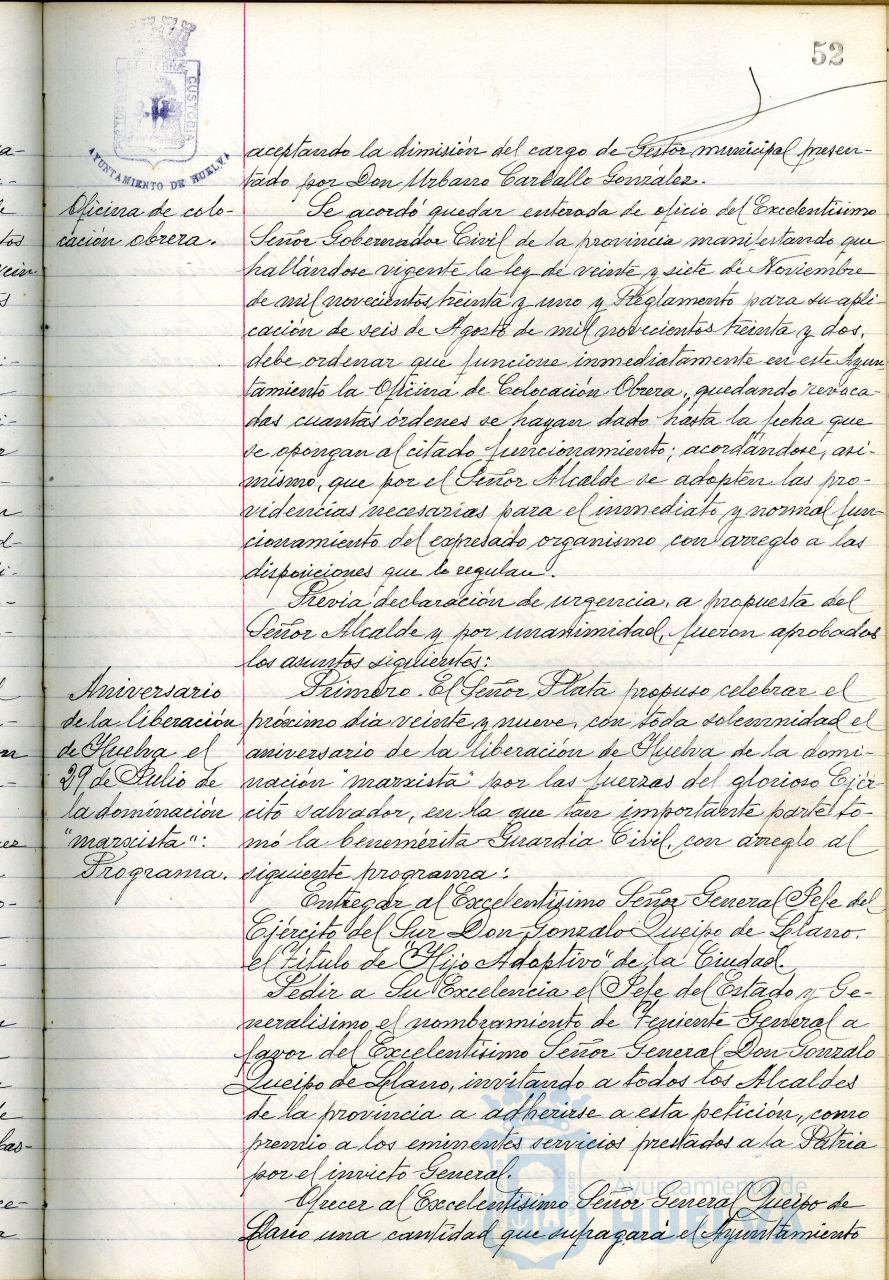 52
PORTUS MARIS ET TERRAE CUSTODIA
AYUNTAMIENTO DE HUELVA
aceptando la dimisión del cargo de Gestor municipal presen-
tado por Don Urbano Carballo González.
Oficina de colo-
cación obrera.
Se acordó quedar enterada de oficio del Excelentísimo
Señor Gobernador Civil de la provincia manifestando que
hallándose vigente la ley de veinte y siete de Noviembre
de mil novecientos treinta y uno y Reglamento para su apli-
cación de seis de Agosto de mil novecientos treinta y dos,
debe ordenar que funcione inmediatamente en este Ayun-
tamiento la Oficina de Colocación Obrera, quedando revoca-
das cuantas órdenes se hayan dado hasta la fecha que
se opongan al citado funcionamiento; acordándose, asi-
mismo, que por el Señor Alcalde se adopten las pro-
videncias necesarias para el inmediato y normal fun-
cionamiento del expresado organismo con arreglo a las
disposiciones que lo regulan.
Previa declaración de urgencia, a propuesta del
Señor Alcalde y por unanimidad, fueron aprobados
los asuntos siguientes:
Aniversario
de la liberación
de Huelva el
29 de Julio de
la dominación
"marxista":
Programa.
Primero. El Señor Plata propuso celebrar el
próximo dia veinte y nueve, con toda solemnidad el
aniversario de la liberación de Huelva de la domi-
nación "marxista" por las fuerzas del glorioso Ejér-
cito salvador, en la que tan importante parte to-
mó la benemérita Guardia Civil, con arreglo al
siguiente programa:
Entregar al Excelentísimo Señor General Jefe del
Ejército del Sur Don Gonzalo Queipo de Llano,
el Título de "Hijo Adoptivo" de la Ciudad.
Pedir a Su Excelencia el Jefe del Estado y Ge-
neralísimo el nombramiento de Teniente General a
favor del Excelentísimo Señor General Don Gonzalo
Queipo de Llano, invitando a todos los Alcaldes
de la provincia a adherirse a esta petición, como
premio a los eminentes servicios prestados a la Patria
por el invicto General.
Ofrecer al Excelentísimo Señor General Queipo de
Llano una cantidad que sufragará el Ayuntamiento
Ayuntamiento de
HUELVA